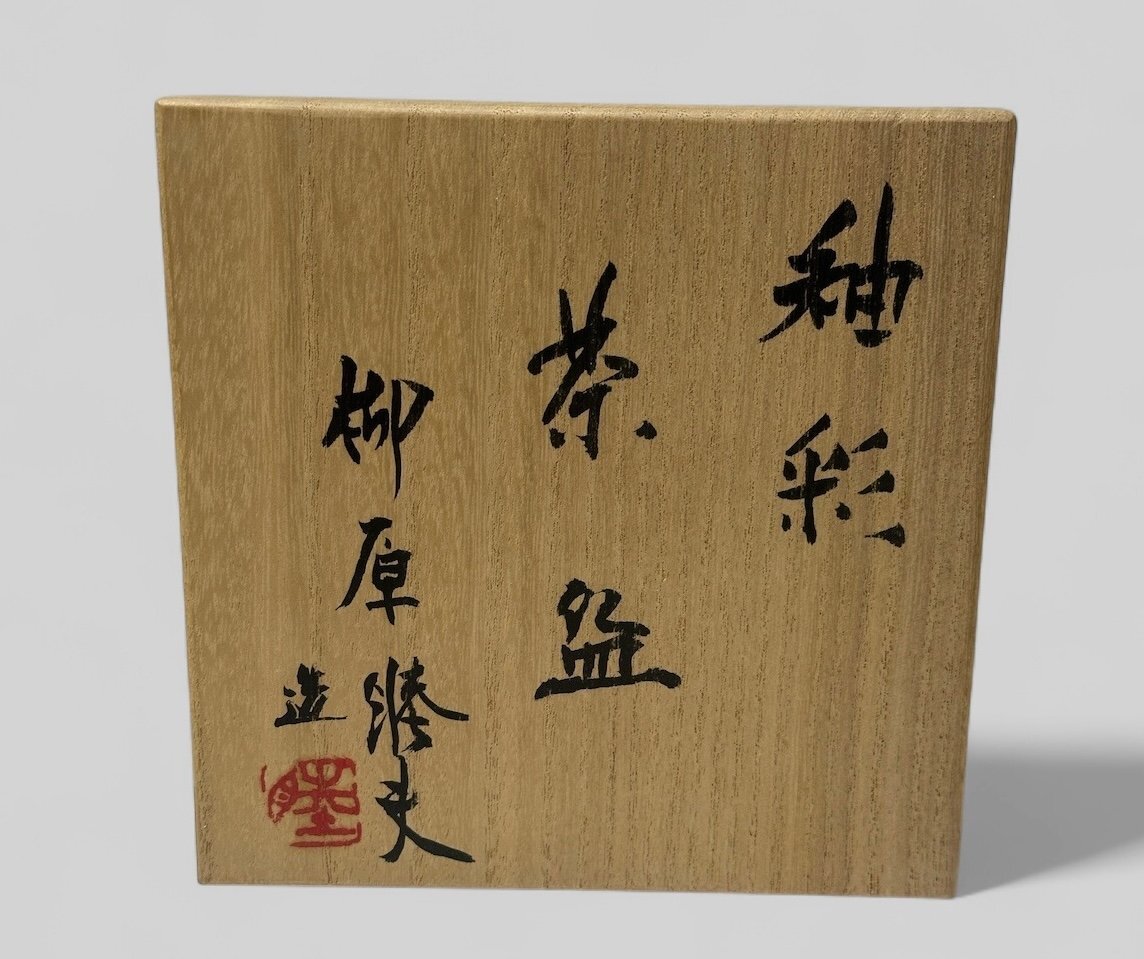 釉彩
茶盌
柳原睦夫
造
睦